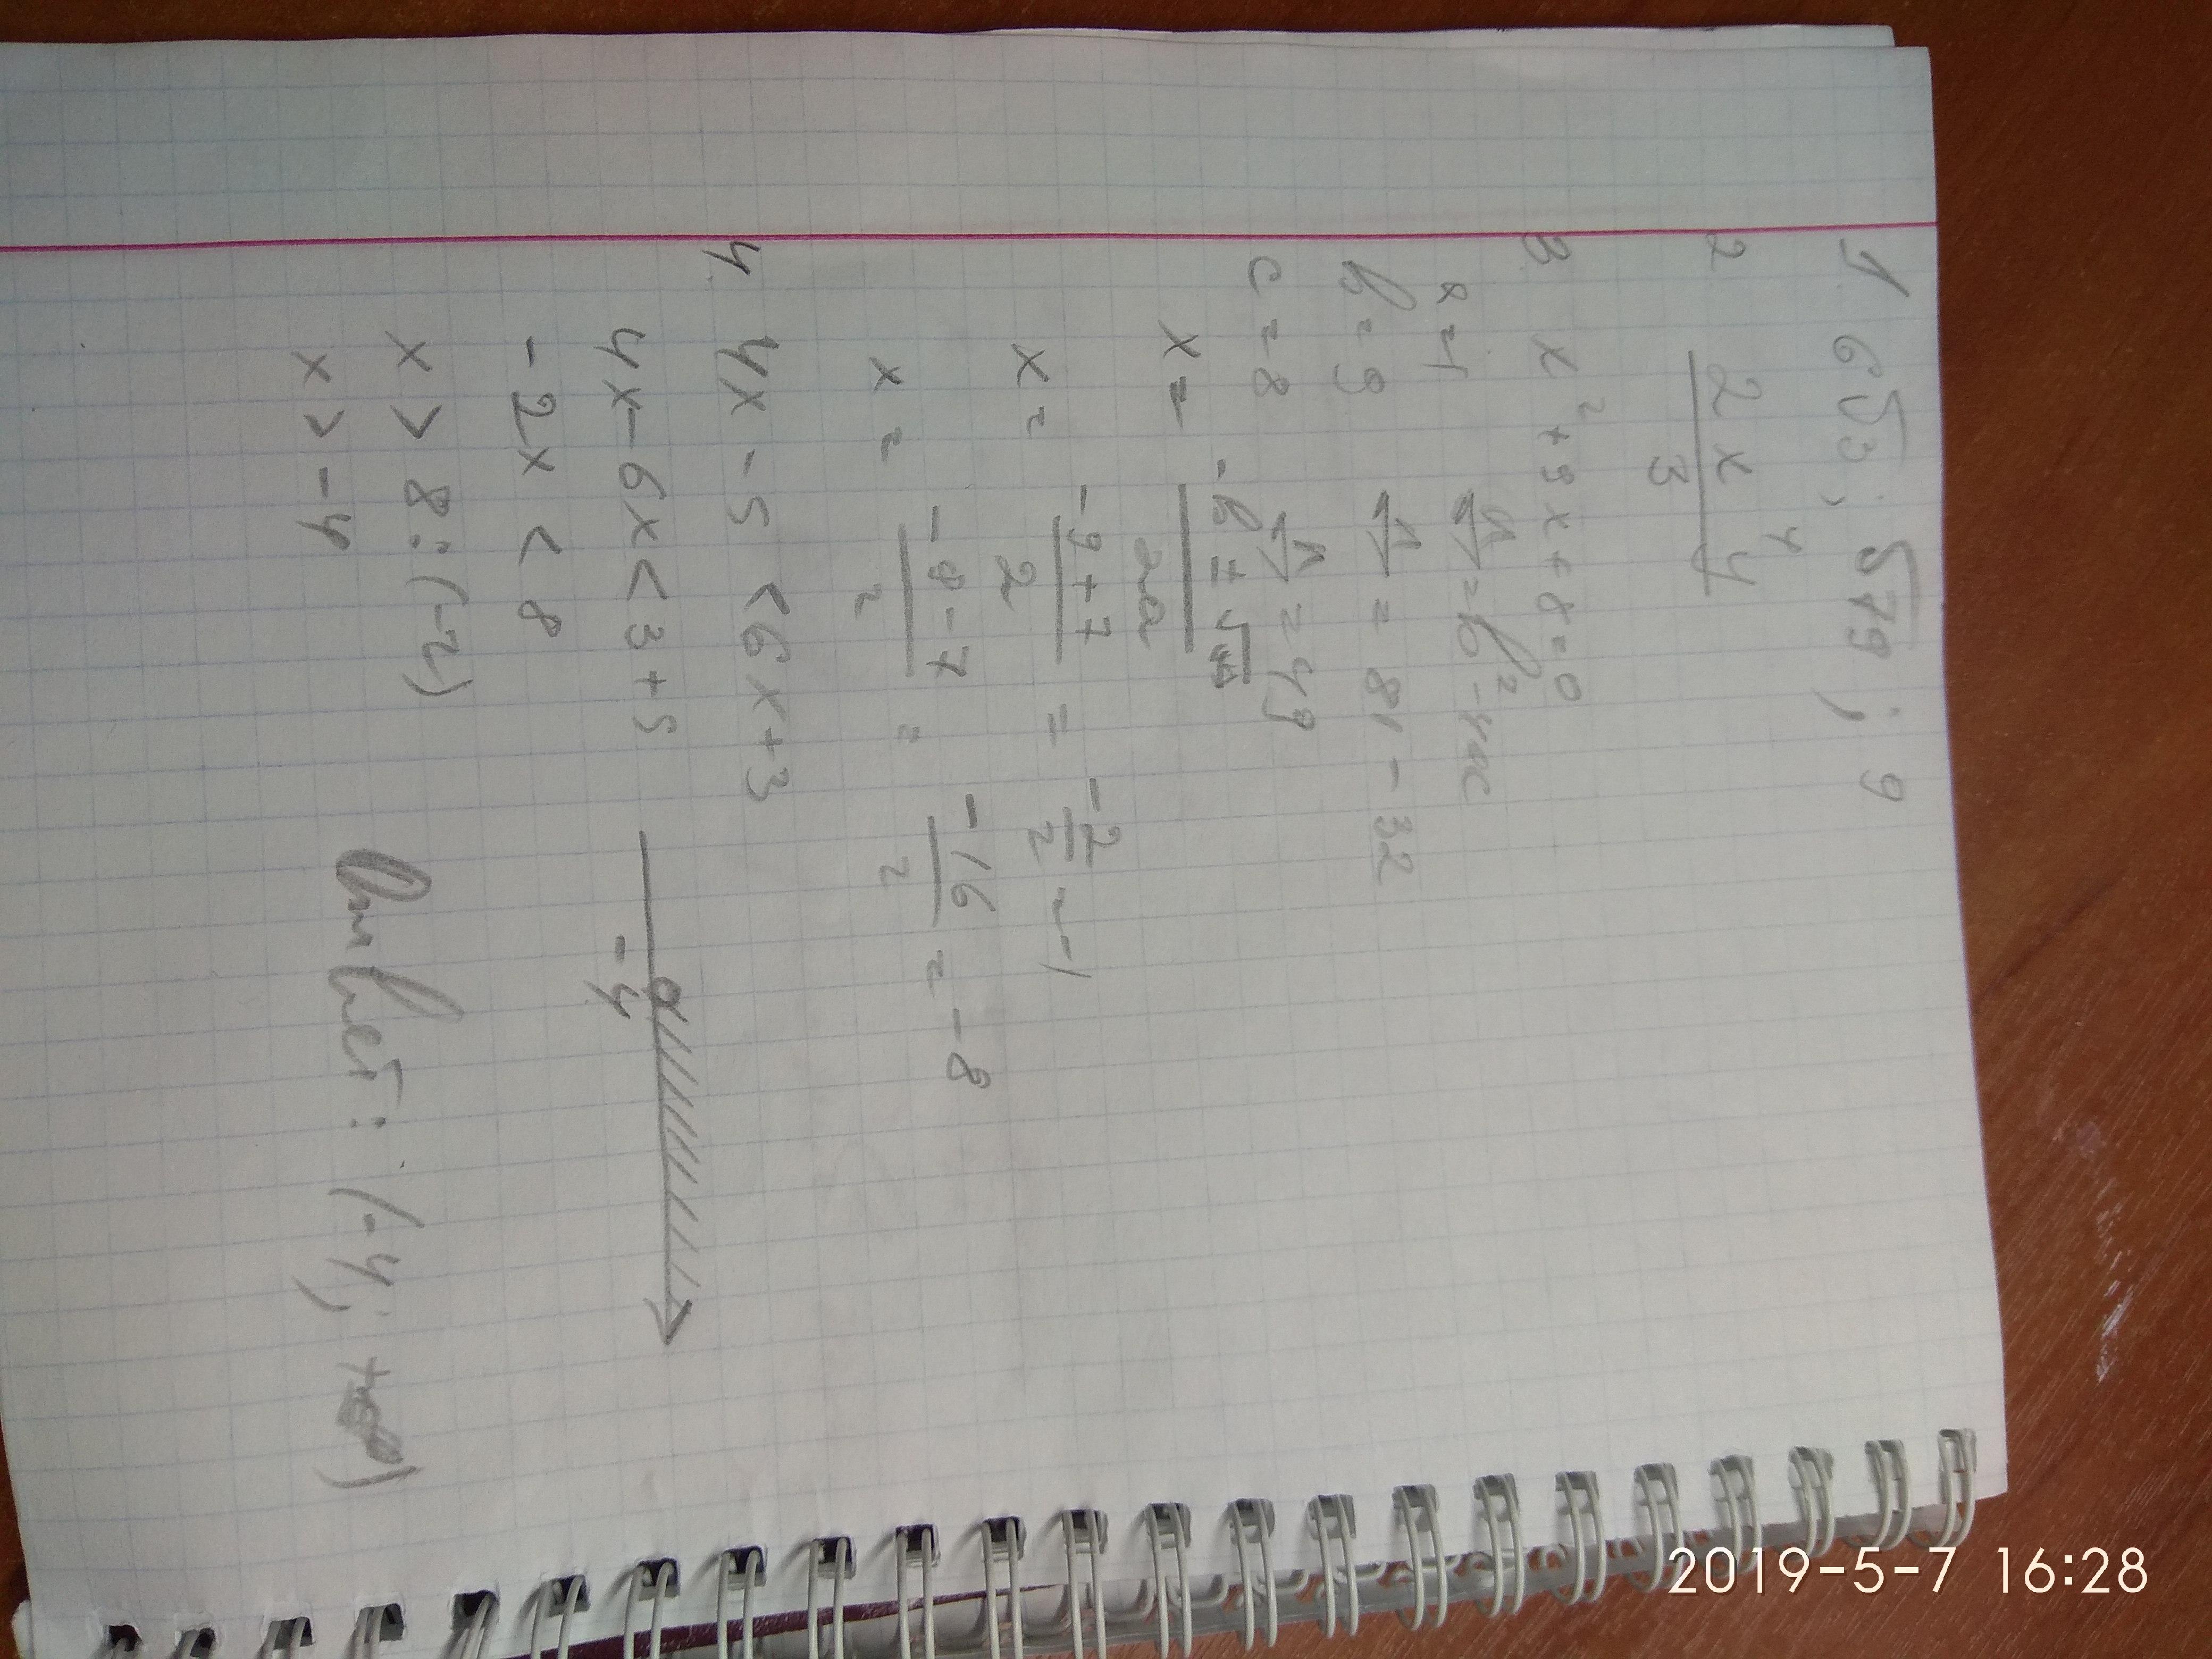 1 6√3; √79; 9
2 2x⁴y
3
3 x² + 9x + 8 = 0
a = 1 = b² - 4ac
b = 9 = 81 - 32
c = 8 = 49
x = -b ±
2a
x = -9+7 = -2 = -1
2 2
x = -9-7 = -16 = -8
2 2
4. 4x - 5 < 6x + 3
4x - 6x < 3 + 5
-4
-2x < 8
x > 8 : (-2)
x > -4
Ответ: (-4; +∞)
2019-5-7 16:28